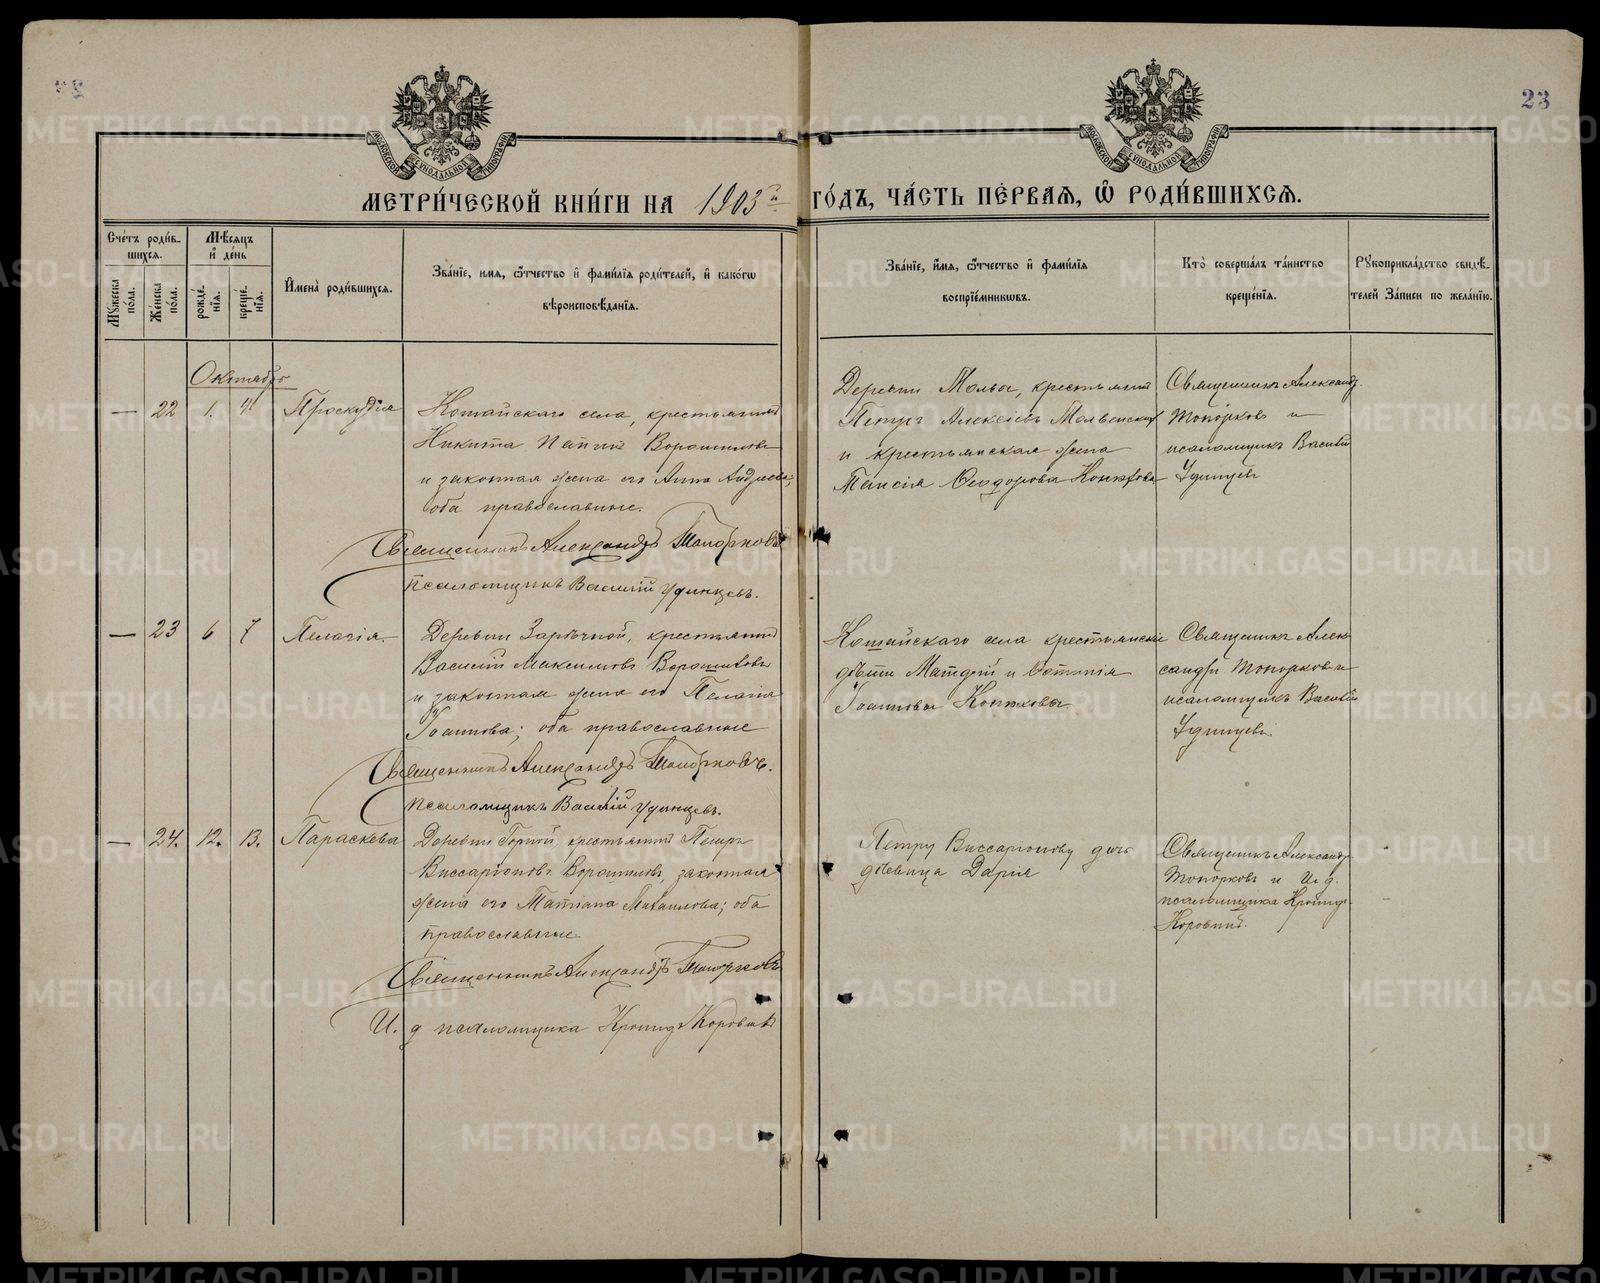 23
МОСКОВСКОЙ СѴНОДАЛЬНОЙ ТИПОГРАФІИ
МОСКОВСКОЙ СѴНОДАЛЬНОЙ ТИПОГРАФІИ
МЕТРИ́ЧЕСКОЙ КНИ́ГИ НА 1903й ГО́ДЪ, ЧА́СТЬ ПЕ́РВАЯ, Ѽ РОДИ́ВШИХСЯ.
Сче́тъ роди́в-
шихся.
Му́жеска пола.
Же́нска пола.
Мѣ́сяцъ
и҆ де́нь
рожде́-
нія.
креще́-
нія.
И҆мена̀ роди́вшихся.
Зва́ніе, имя, ѻ҆́тчество и҆ фами́лія роди́телей, и҆ како́гѡ
вѣроисповѣ́данія.
Зва́ніе, и҆́мя, ѻ҆́тчество и҆ фами́лія
воспріе́мниковъ.
Кто̀ соверша́лъ та́инство
креще́нія.
Рꙋкоприкла́дство свидѣ́-
телей За́писи по жела́нію.
Октябрь
— 22 1. 4.
Котайскаго села, крестьянинъ
Никита Ворошиловъ
и законная жена его Анна Андреева,
оба православные.
Священникъ Александръ Топорковъ
Псаломщикъ Василій Удинцевъ.
Деревни Мольвы, крестьянинъ
Петръ Алексѣевъ
и крестьянская жена
Таисія Ѳеодорова Конюхова
Священникъ Александръ
Топорковъ и
псаломщикъ Василій
Удинцевъ
— 23 6 7 Пелагія.
Деревни Зарѣчной, крестьянинъ
Василій Максимовъ Ворошиловъ
и законная жена его Пелагія
Іоаннова; оба православные
Священникъ Александръ Топорковъ.
Псаломщикъ Василій Удинцевъ.
Котайскаго села крестьянскіе
дѣти и
Іоанновы Конюховы
Священникъ Алек-
сандръ Топорковъ и
псаломщикъ Василій
Удинцевъ.
— 24. 12. 13. Параскева
Деревни Горной крестьянинъ Петръ
Виссаріоновъ Ворошиловъ, законная
жена его Татіана Михаилова; оба
православные.
Священникъ Александръ Топорковъ
И. д псаломщика Кронидъ Коровинъ
Петру Виссаріонову дочь
дѣвица Дарія
Священникъ Александръ
Топорковъ и И. д.
псаломщика Кронидъ
Коровинъ.
METRIKI.GASO-URAL.RU